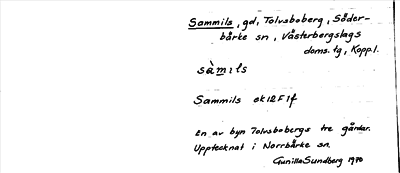 Sammils, gd, Tolvsboberg, Söder-
bärke sn, Västerbergslags
doms. tg, Kopp.l.
sàmils
Sammils ek 12 F 1f
En av byn Tolvsbobergs tre gårdar.
Upptecknat i Norrbärke sn.
Gunilla Sundberg 1970